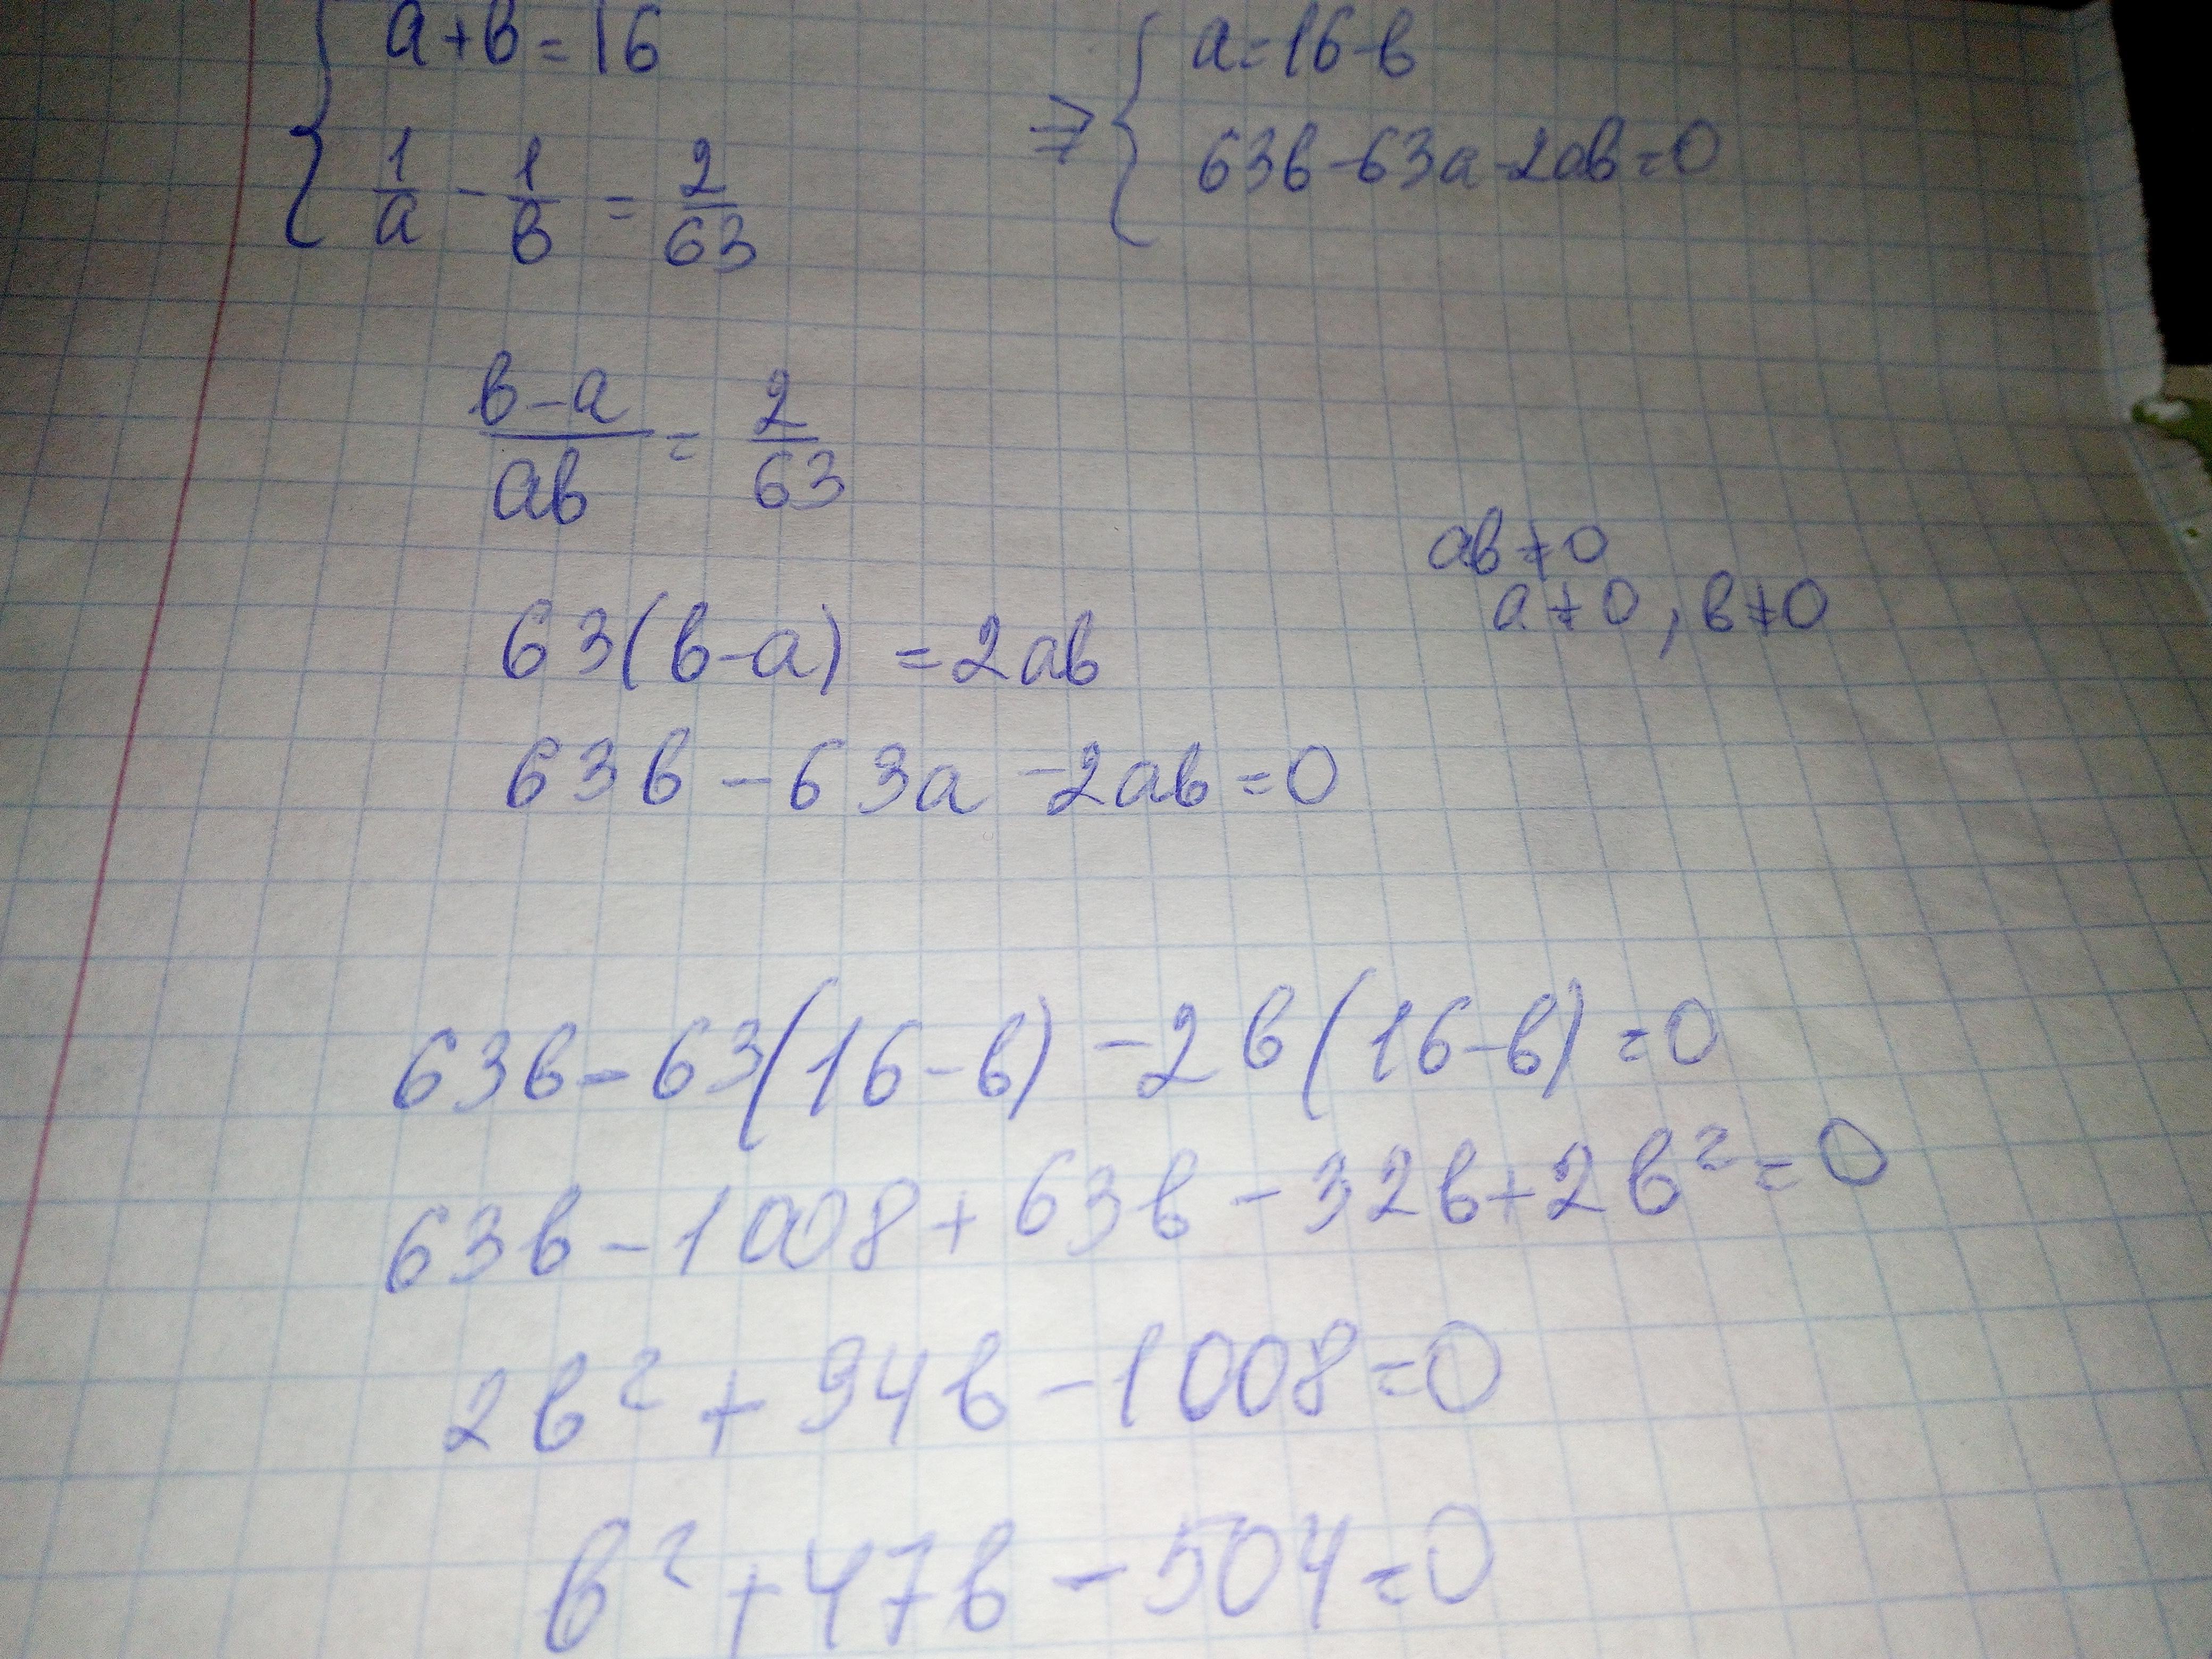 a+b=16 ⇒ a=16-b
1/a - 1/b = 2/63 63b-63a-2ab=0
b-a/ab = 2/63
ab≠0
a≠0, b≠0
63(b-a) =2ab
63b-63a-2ab=0
63b-63(16-b)-2b(16-b)=0
63b-1008+63b-32b+2b²=0
2b²+94b-1008=0
b²+47b-504=0